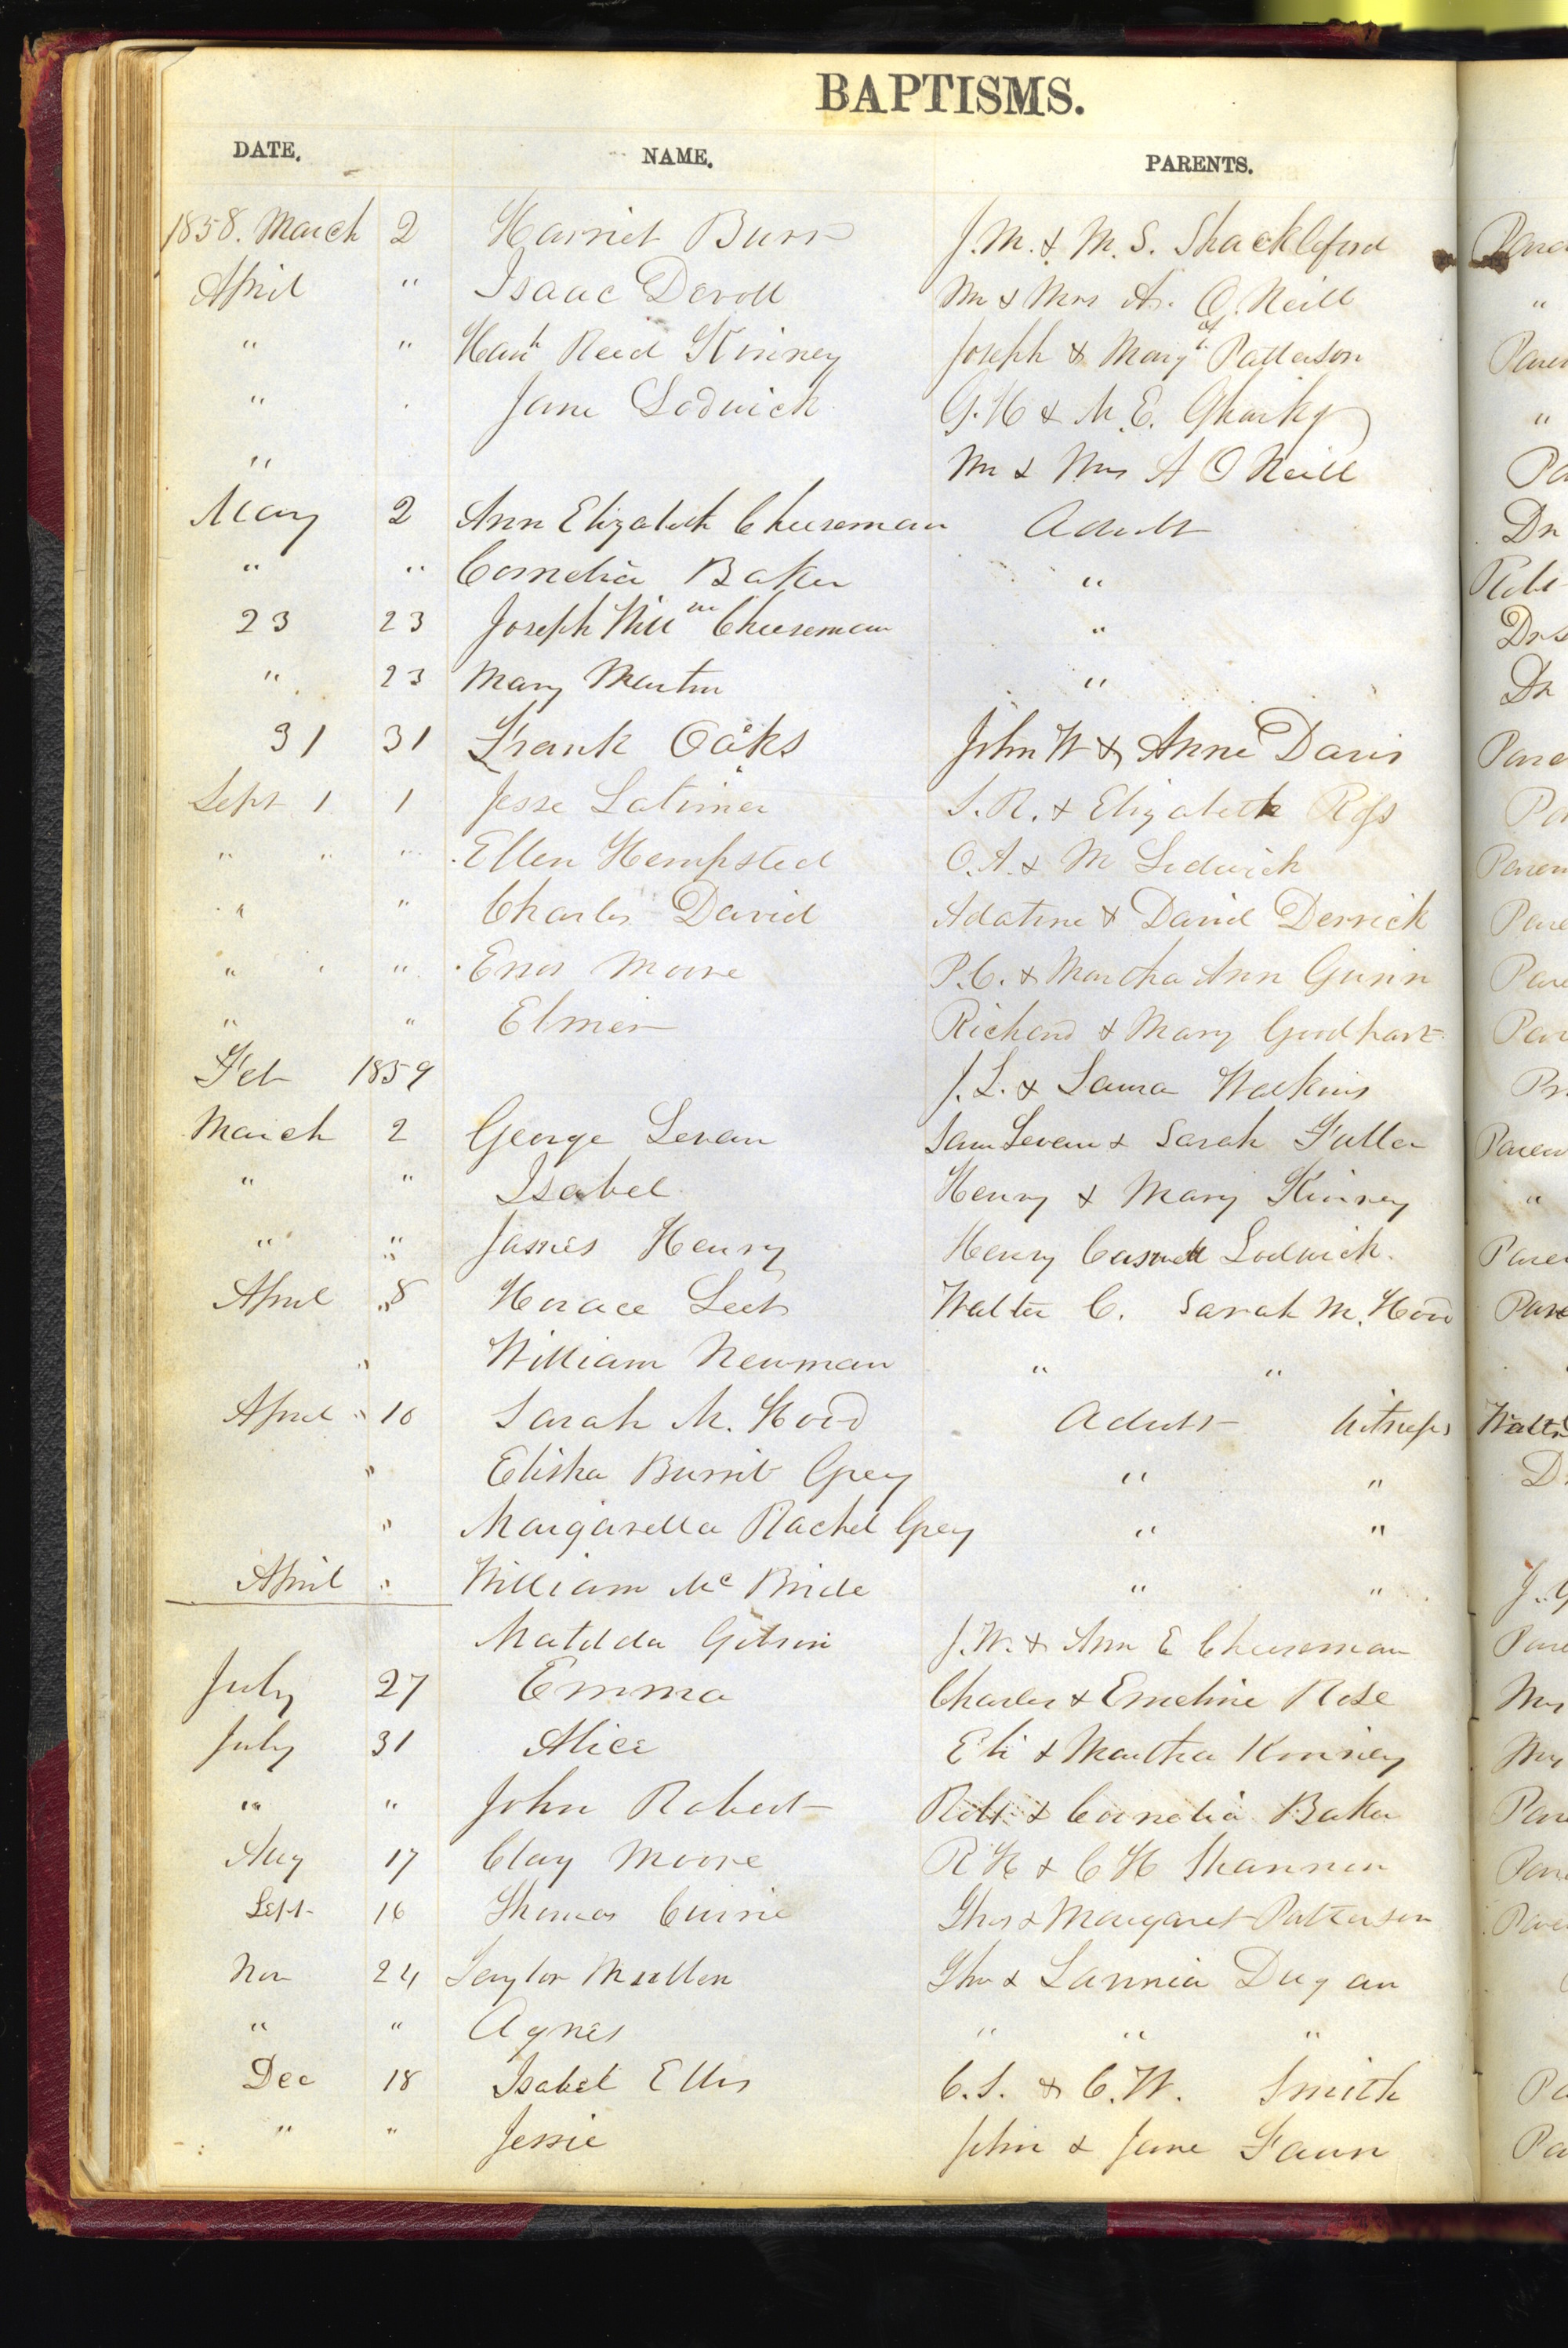 BAPTISMS.
DATE. NAME. PARENTS.
1858. March 2 Harriet Burr J. M. & M. S. Shackleford
April " Isaac Devoll Mr & Mrs A. O. Neill
" " Hanh Reed Kinney Joseph & Margt Patterson
" Jane Lodwick G. H & M. E. Gharky
" Mr & Mrs A O Neill
May 2 Ann Elizabeth Cheeseman Adult
" " Cornelia Baker "
23 23 Joseph Willm Cheeseman "
" 23 Mary Martin "
31 31 Frank Oaks John W & Anne Davis
Sept 1 1 Jesse Latimer S. R. & Elizabeth Ross
" " " Ellen Hempsted O. A. & M Lodwick
" " Charles David Adatine & David Derrick
" " Enos Moore P. C. & Martha Ann Gunn
" " Elmer Richard & Mary Goodhart
Feb 1859 J. L. & Laura Watkins
March 2 George Levan Sam Levan & Sarah Fuller
" " Isabel Henry & Mary Kinney
" " James Henry Henry Lodwick.
April 8 Horace Leet Walter C. Sarah M. Hood
" William Newman " "
April " 10 Sarah M. Hood Adult Witness
" Elisha Burrit Grey " "
" Margarella Rachel Grey " "
April " William Mc Bride " "
Matilda Gibson J. W. & Ann E Cheeseman
July 27 Emma Charles & Emeline Rose
July 31 Alice Eli & Martha Kinney
" " John Robert Robt & Cornelia Baker
Aug 17 Clay Moore R H & C H Shannon
Sept 16 Thomas Currie Thos & Margaret Patterson
Nov 24 Taylor Mullen Thos & Lannia Dugan
" " Agnes " " "
Dec 18 Isabel Ellis C. S. & C. W. Smith
" " Jessie John & Jane Fawn